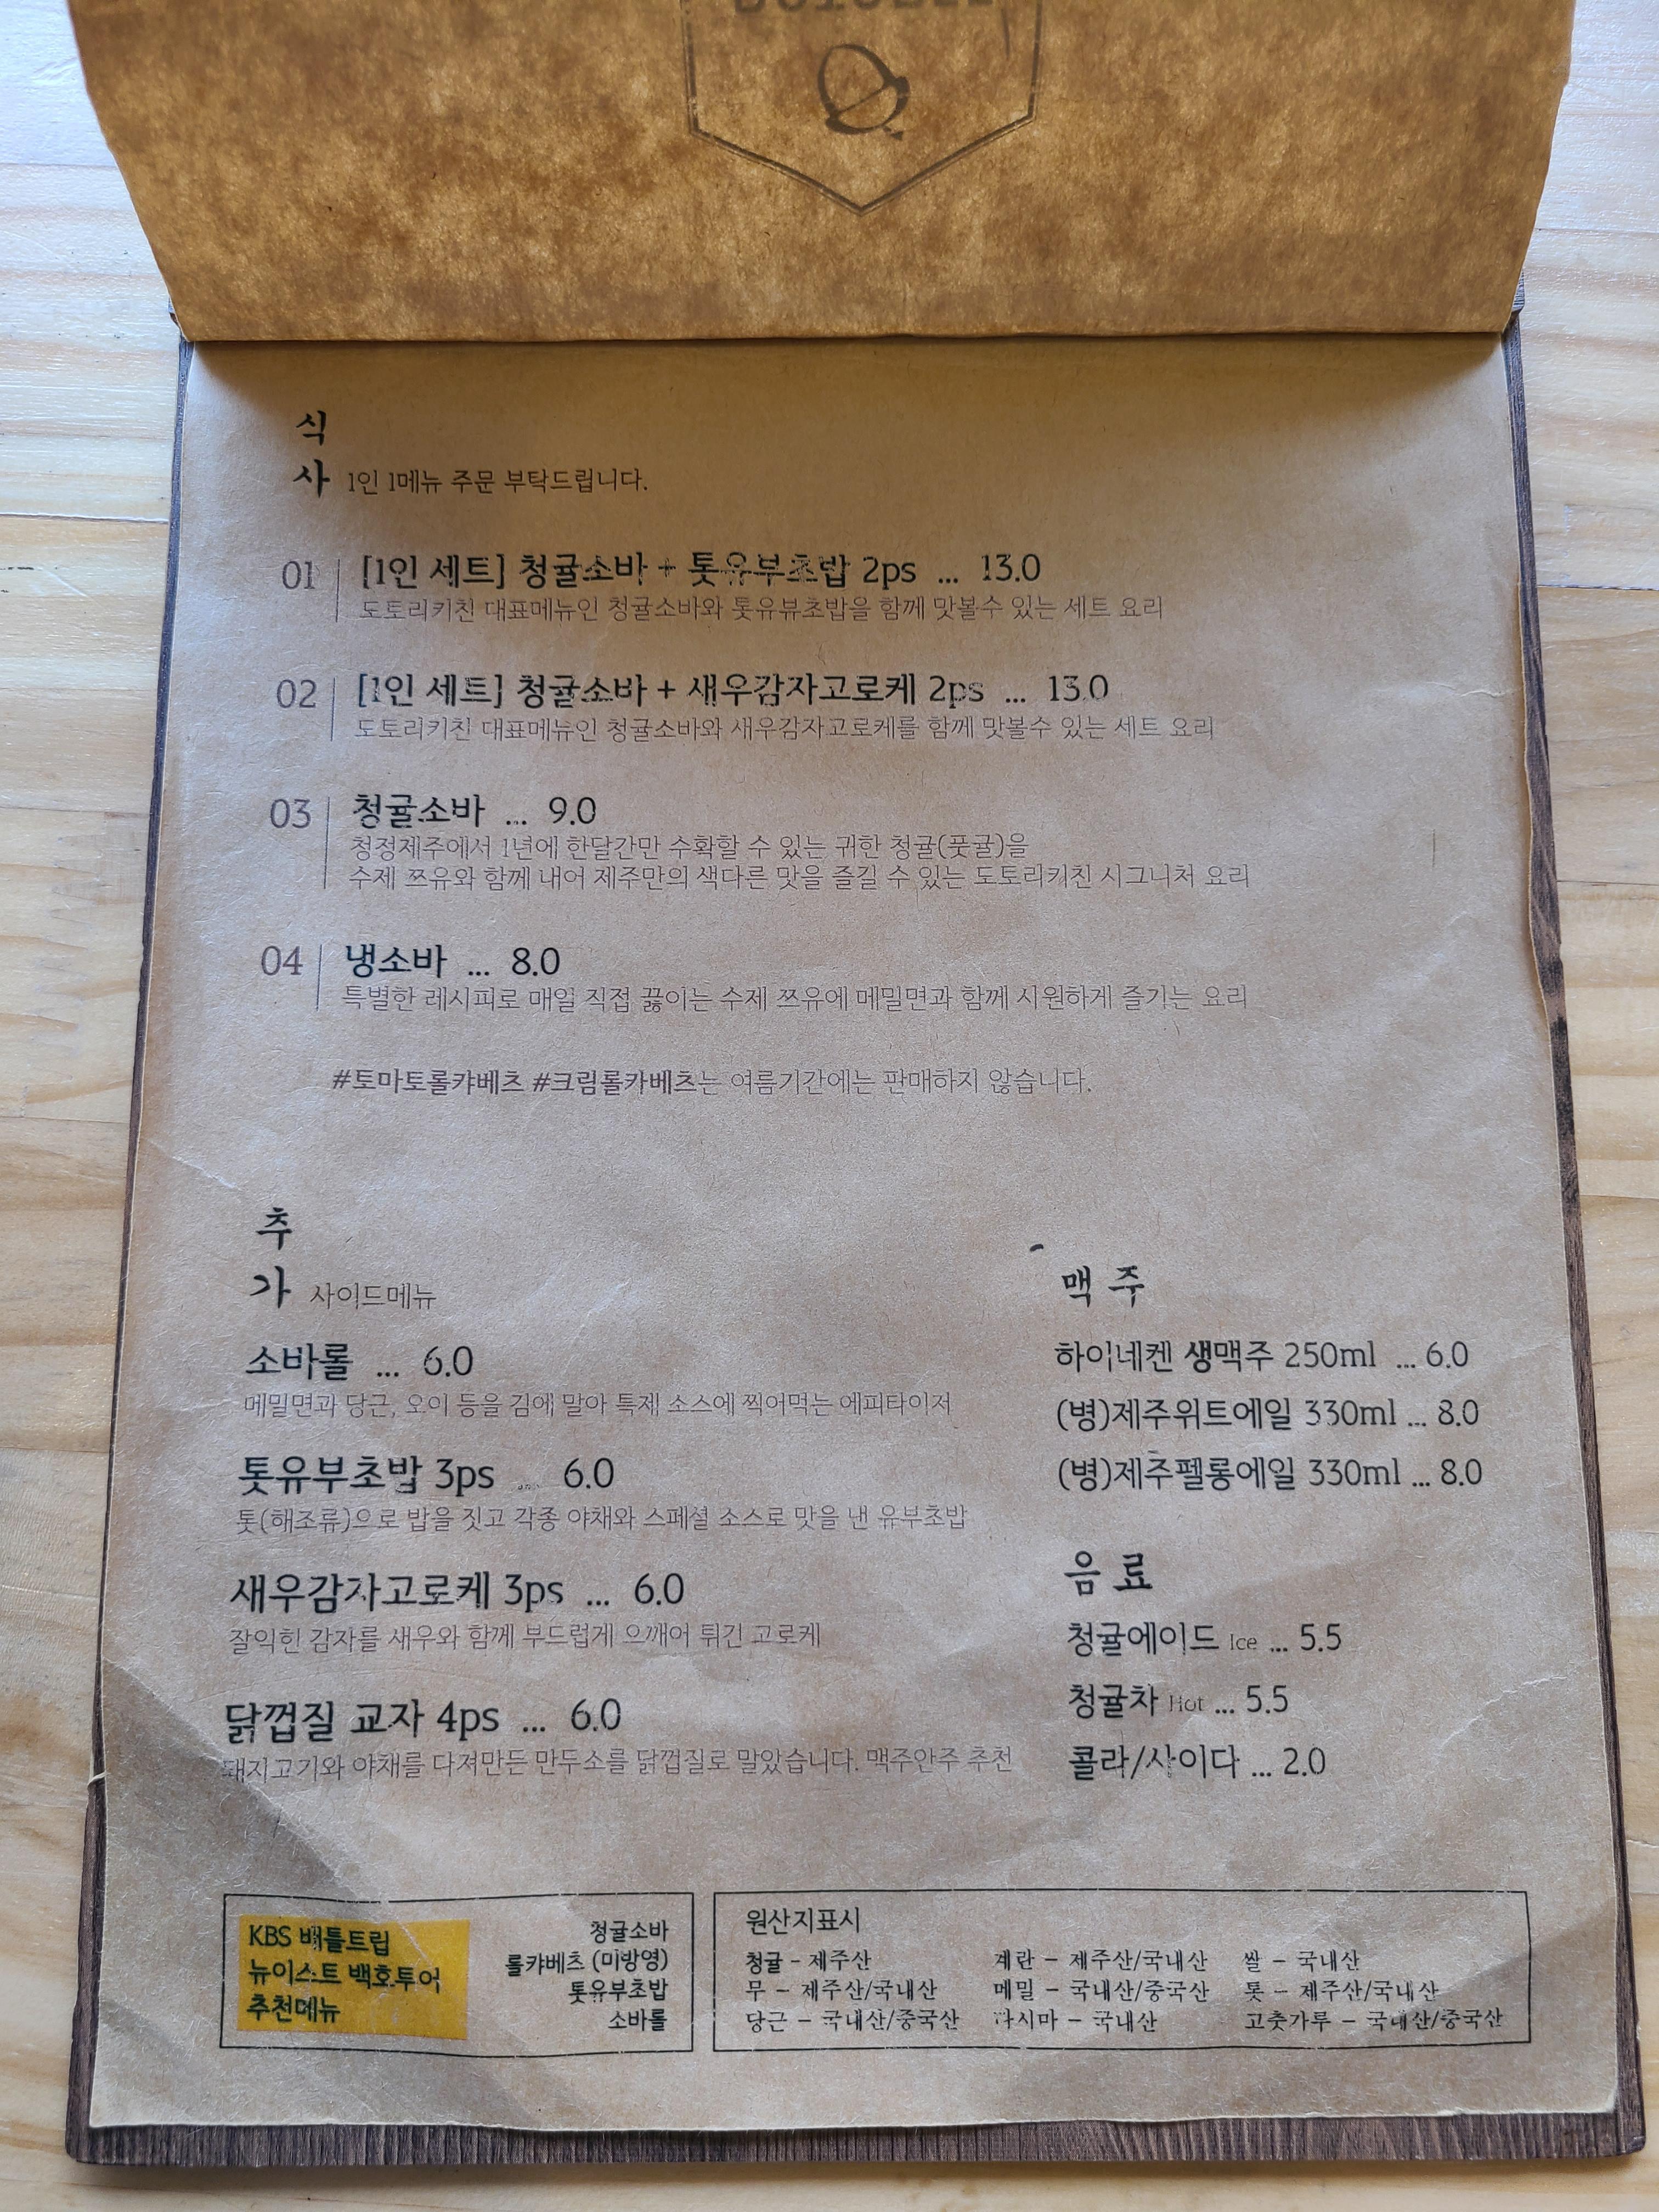 식
사 1인 1메뉴 주문 부탁드립니다.
01 [1인 세트] 청귤소바 + 톳유부초밥 2ps ... 13.0
도토리키친 대표메뉴인 청귤소바와 톳유뷰초밥을 함께 맛볼수 있는 세트 요리
02 [1인 세트] 청귤소바 + 새우감자고로케 2ps ... 13.0
도토리키친 대표메뉴인 청귤소바와 새우감자고로케를 함께 맛볼수 있는 세트 요리
03 청귤소바 ... 9.0
청정제주에서 1년에 한달간만 수확할 수 있는 귀한 청귤(풋귤)을
수제 쯔유와 함께 내어 제주만의 색다른 맛을 즐길 수 있는 도토리키친 시그니처 요리
04 냉소바 ... 8.0
특별한 레시피로 매일 직접 끓이는 수제 쯔유에 메밀면과 함께 시원하게 즐기는 요리
#토마토롤캬베츠 #크림롤캬베츠는 여름기간에는 판매하지 않습니다.
추
가 사이드메뉴
소바롤 ... 6.0
메밀면과 당근, 오이 등을 김에 말아 특제 소스에 찍어먹는 에피타이저
톳유부초밥 3ps ... 6.0
톳(해조류)으로 밥을 짓고 각종 야채와 스페셜 소스로 맛을 낸 유부초밥
새우감자고로케 3ps ... 6.0
잘익힌 감자를 새우와 함께 부드럽게 으깨어 튀긴 고로케
닭껍질 교자 4ps ... 6.0
돼지고기와 야채를 다져만든 만두소를 닭껍질로 말았습니다. 맥주안주 추천
맥 주
하이네켄 생맥주 250ml ... 6.0
(병)제주위트에일 330ml ... 8.0
(병)제주펠롱에일 330ml ... 8.0
음 료
청귤에이드 Ice ... 5.5
청귤차 Hot ... 5.5
콜라/사이다 ... 2.0
KBS 배틀트립
뉴이스트 백호투어
추천메뉴
청귤소바
롤캬베츠 (미방영)
톳유부초밥
소바롤
원산지표시
청귤 - 제주산 계란 - 제주산/국내산 쌀 - 국내산
무 - 제주산/국내산 메밀 - 국내산/중국산 톳 - 제주산/국내산
당근 - 국내산/중국산 다시마 - 국내산 고춧가루 - 국내산/중국산